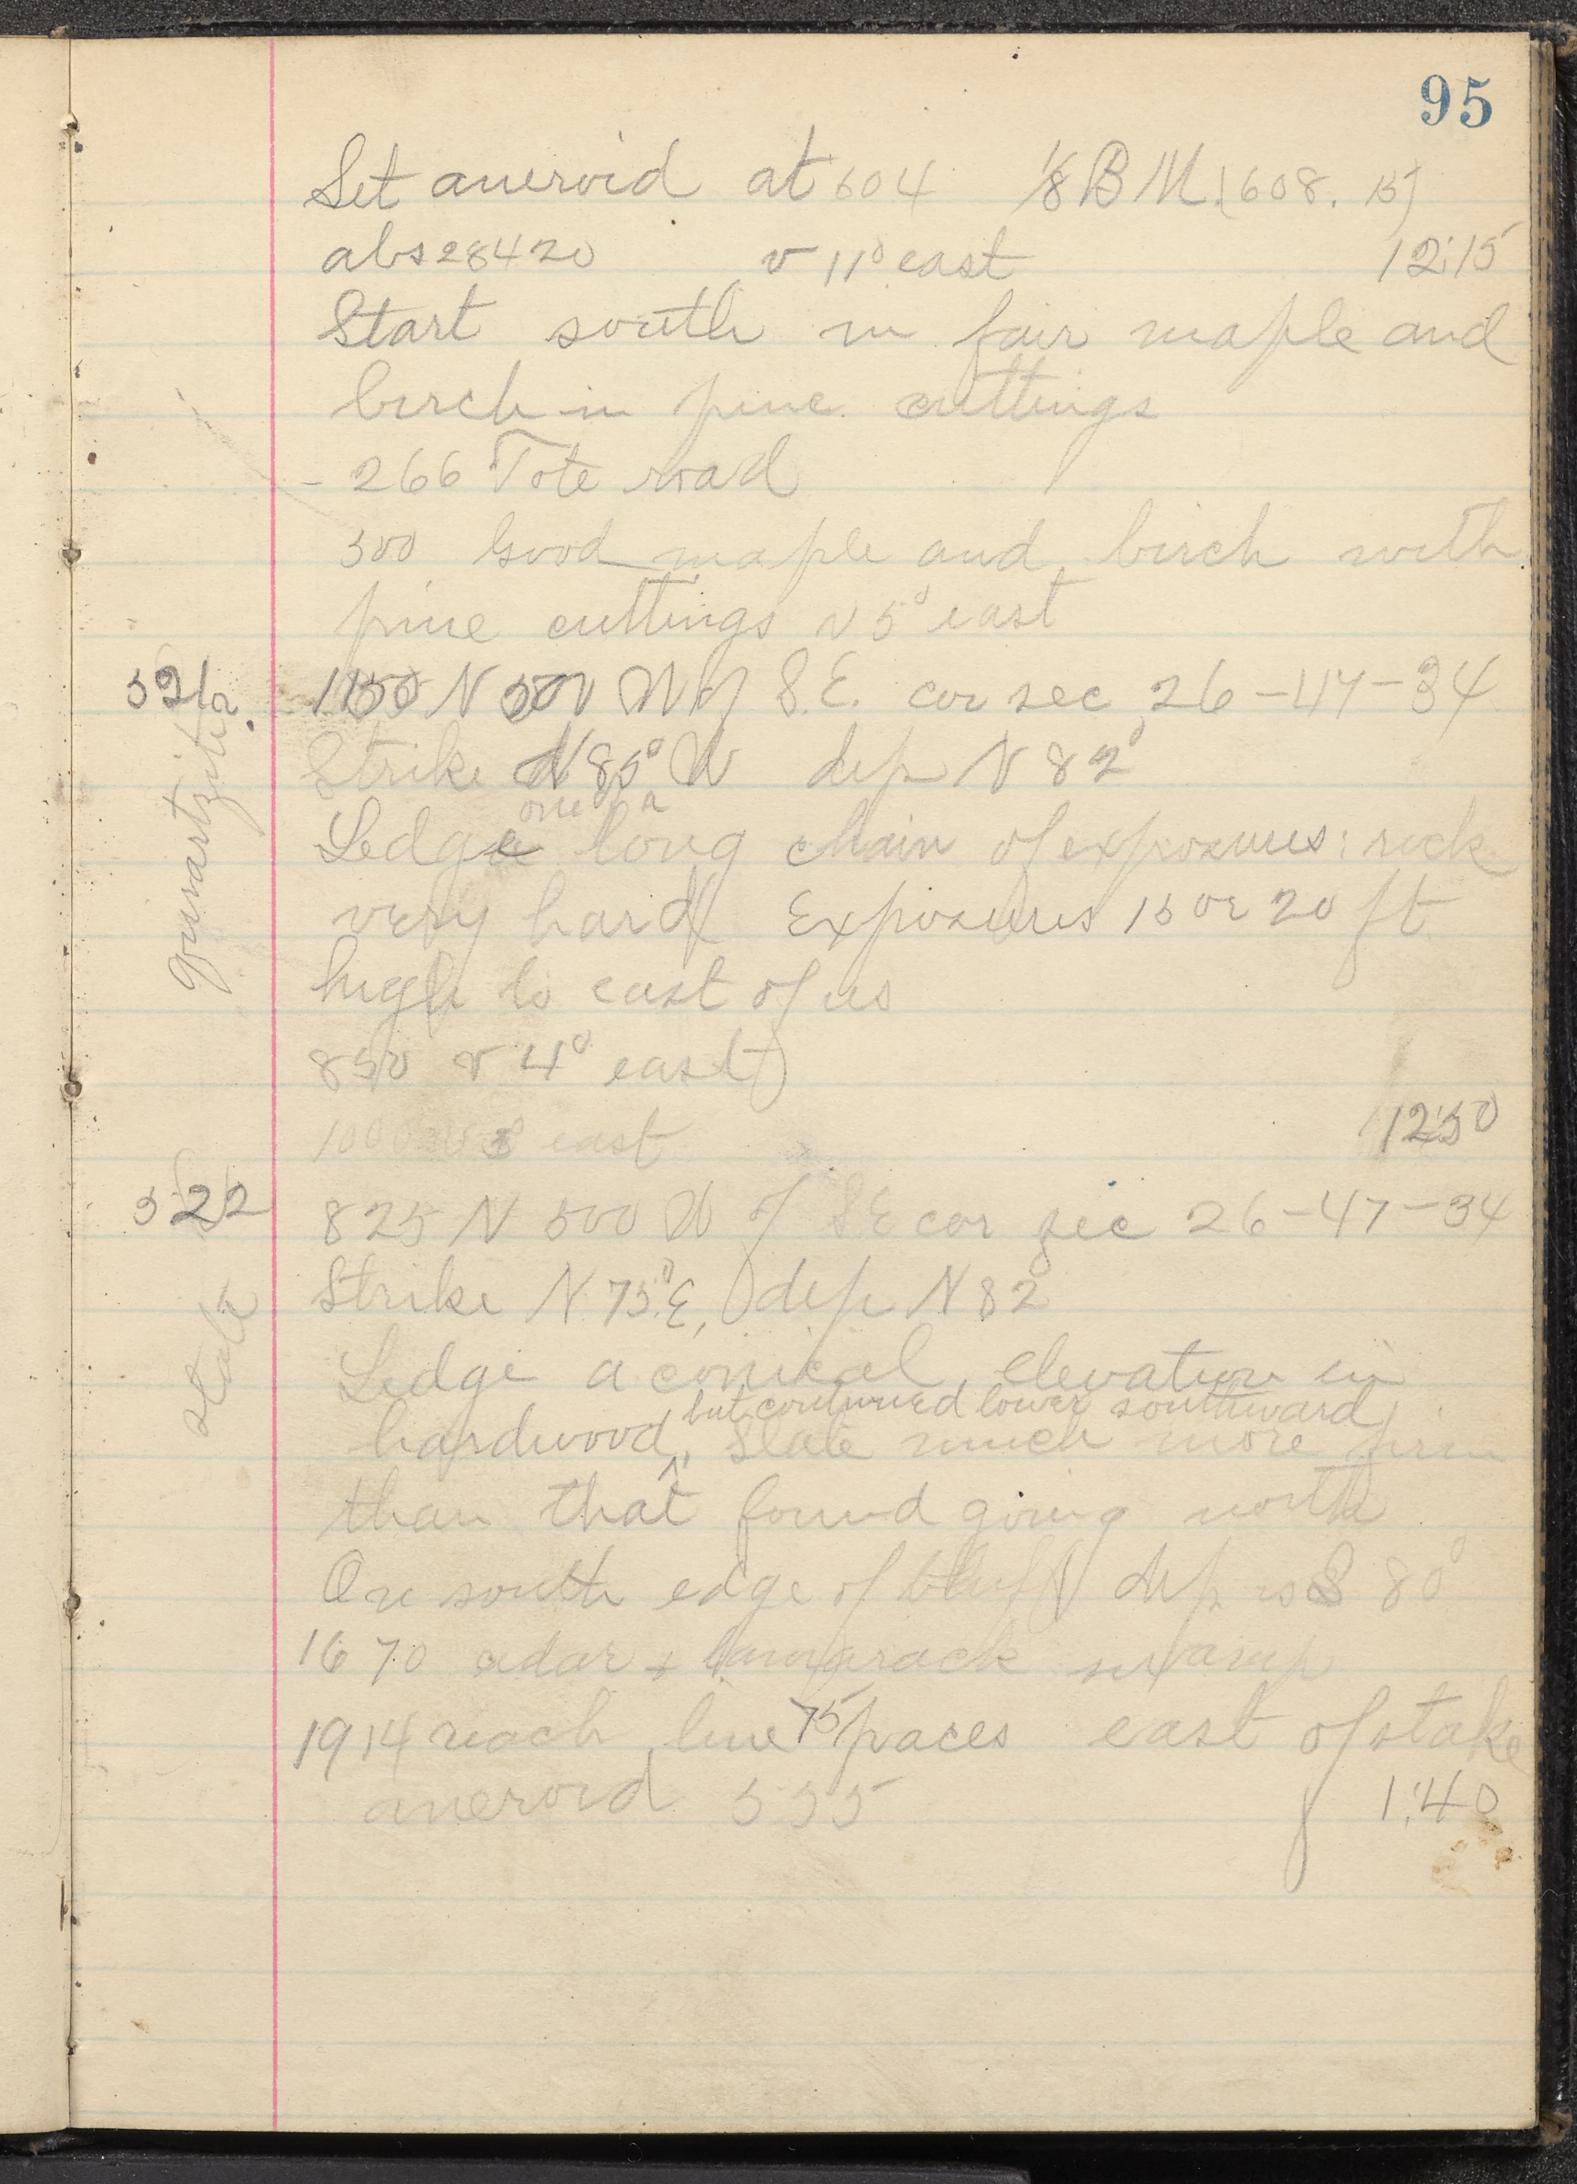 95
Set aneroid at 604 1/8 B M. (608. 15)
abs 28420 v 11° east 12:15
Start south in fair maple and
birch in pine cuttings
- 266 Tote road
500 Good maple and birch with
pine cuttings v 5° east
N 500 W of S.E. cor sec 26-47-34
Strike N 85° W dip N 82°
Ledge one of a long chain of exposures: rock
very hard Exposures 15 or 20 ft
high to east of us
850 v 4° east
1000 east 12:50
522 825 N 500 W of S E cor sec 26-47-34
Strike N. 75° E, dip N 82
Ledge a conical elevation in
but continued lower southward
hardwood, Slate much more firm
than that found going north
On south edge of bluff dip is S 80°
1670 cedar + tamarack swamp
1914 reach line 75 paces east of stake
aneroid 555 1:40
quartzite
slate